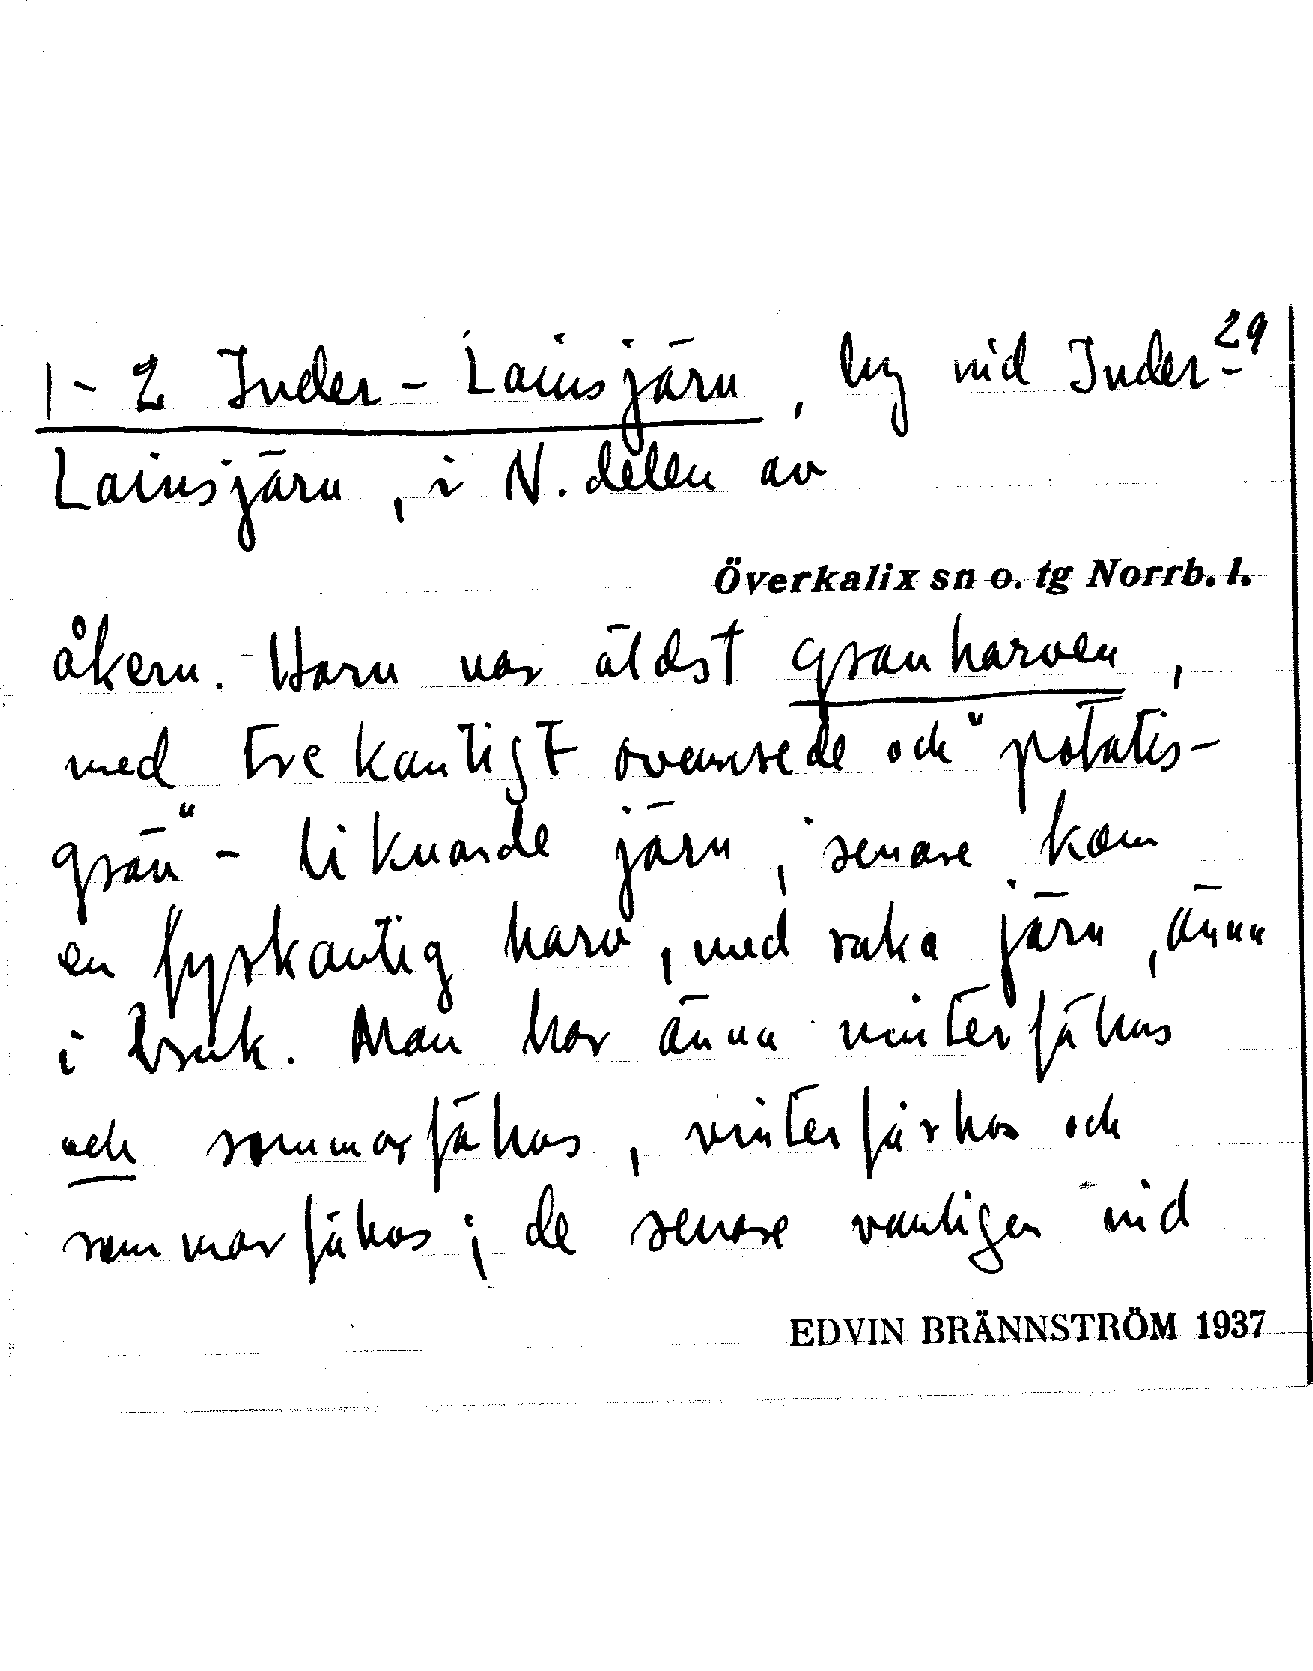 29
1-2 Inder-Lainsjärn, by vid Inder-
Lainsjärn, i N. delen av
Överkalix sn o. tg Norrb. l.
åkern. Harv var äldst granharven,
med trekantigt ovanrede och "potatis-
grän"-liknande järn, senare kom
en fyrkantig harv, med raka järn, ännu
i bruk. Man har ännu vinterfähus
och sommarfähus, vinterfårhus och
sommarfähus; de senare vanligen vid
EDVIN BRÄNNSTRÖM 1937